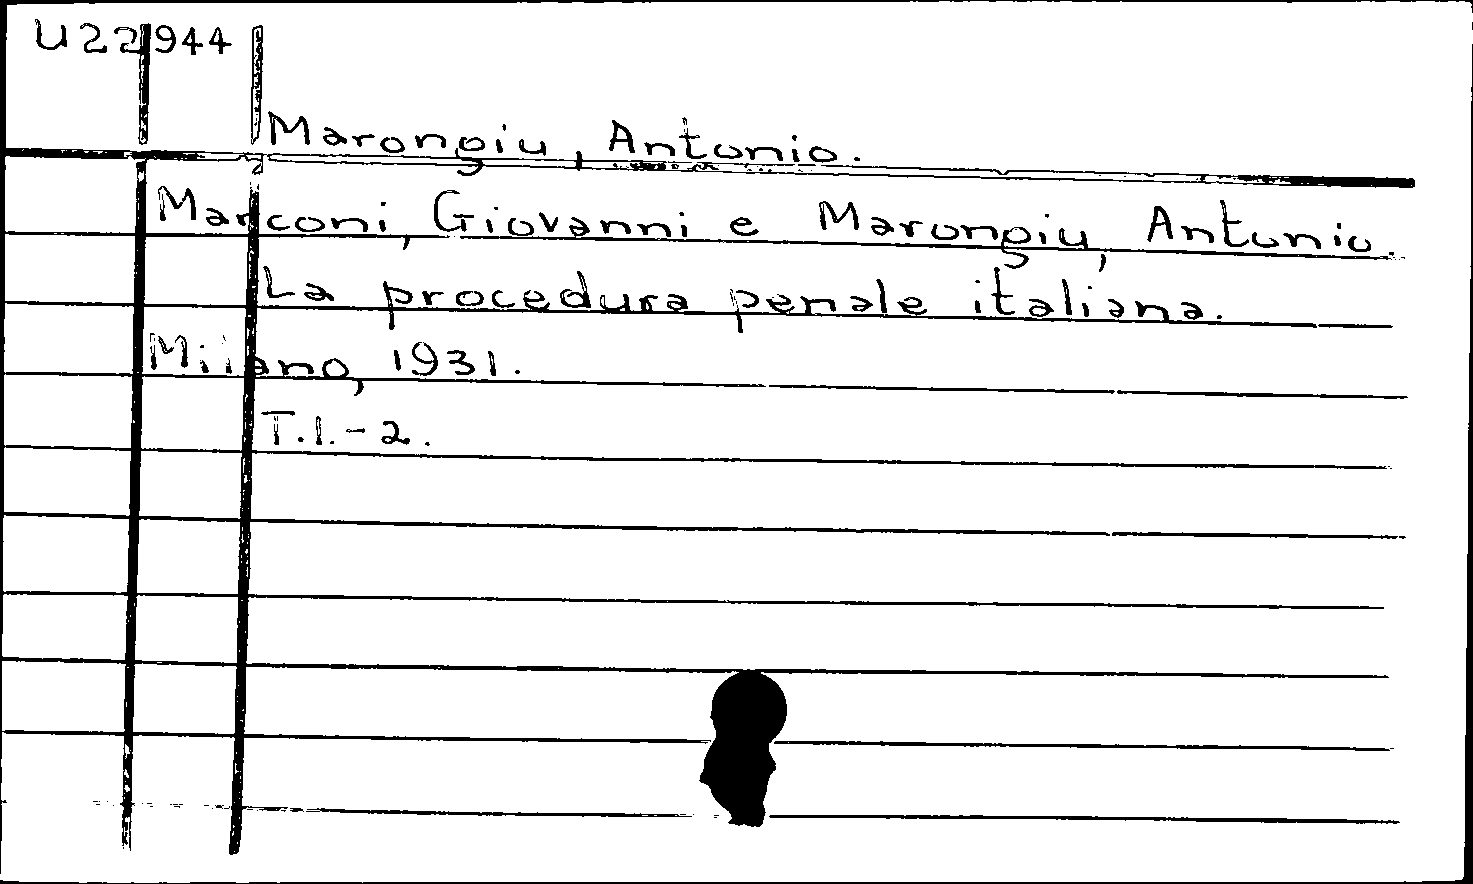 U22944
Marongiu, Antonio.
Marconi, Giovanni e Marongiu, Antonio.
La procedura penale italiana.
Milano, 1931.
T.I.-2.